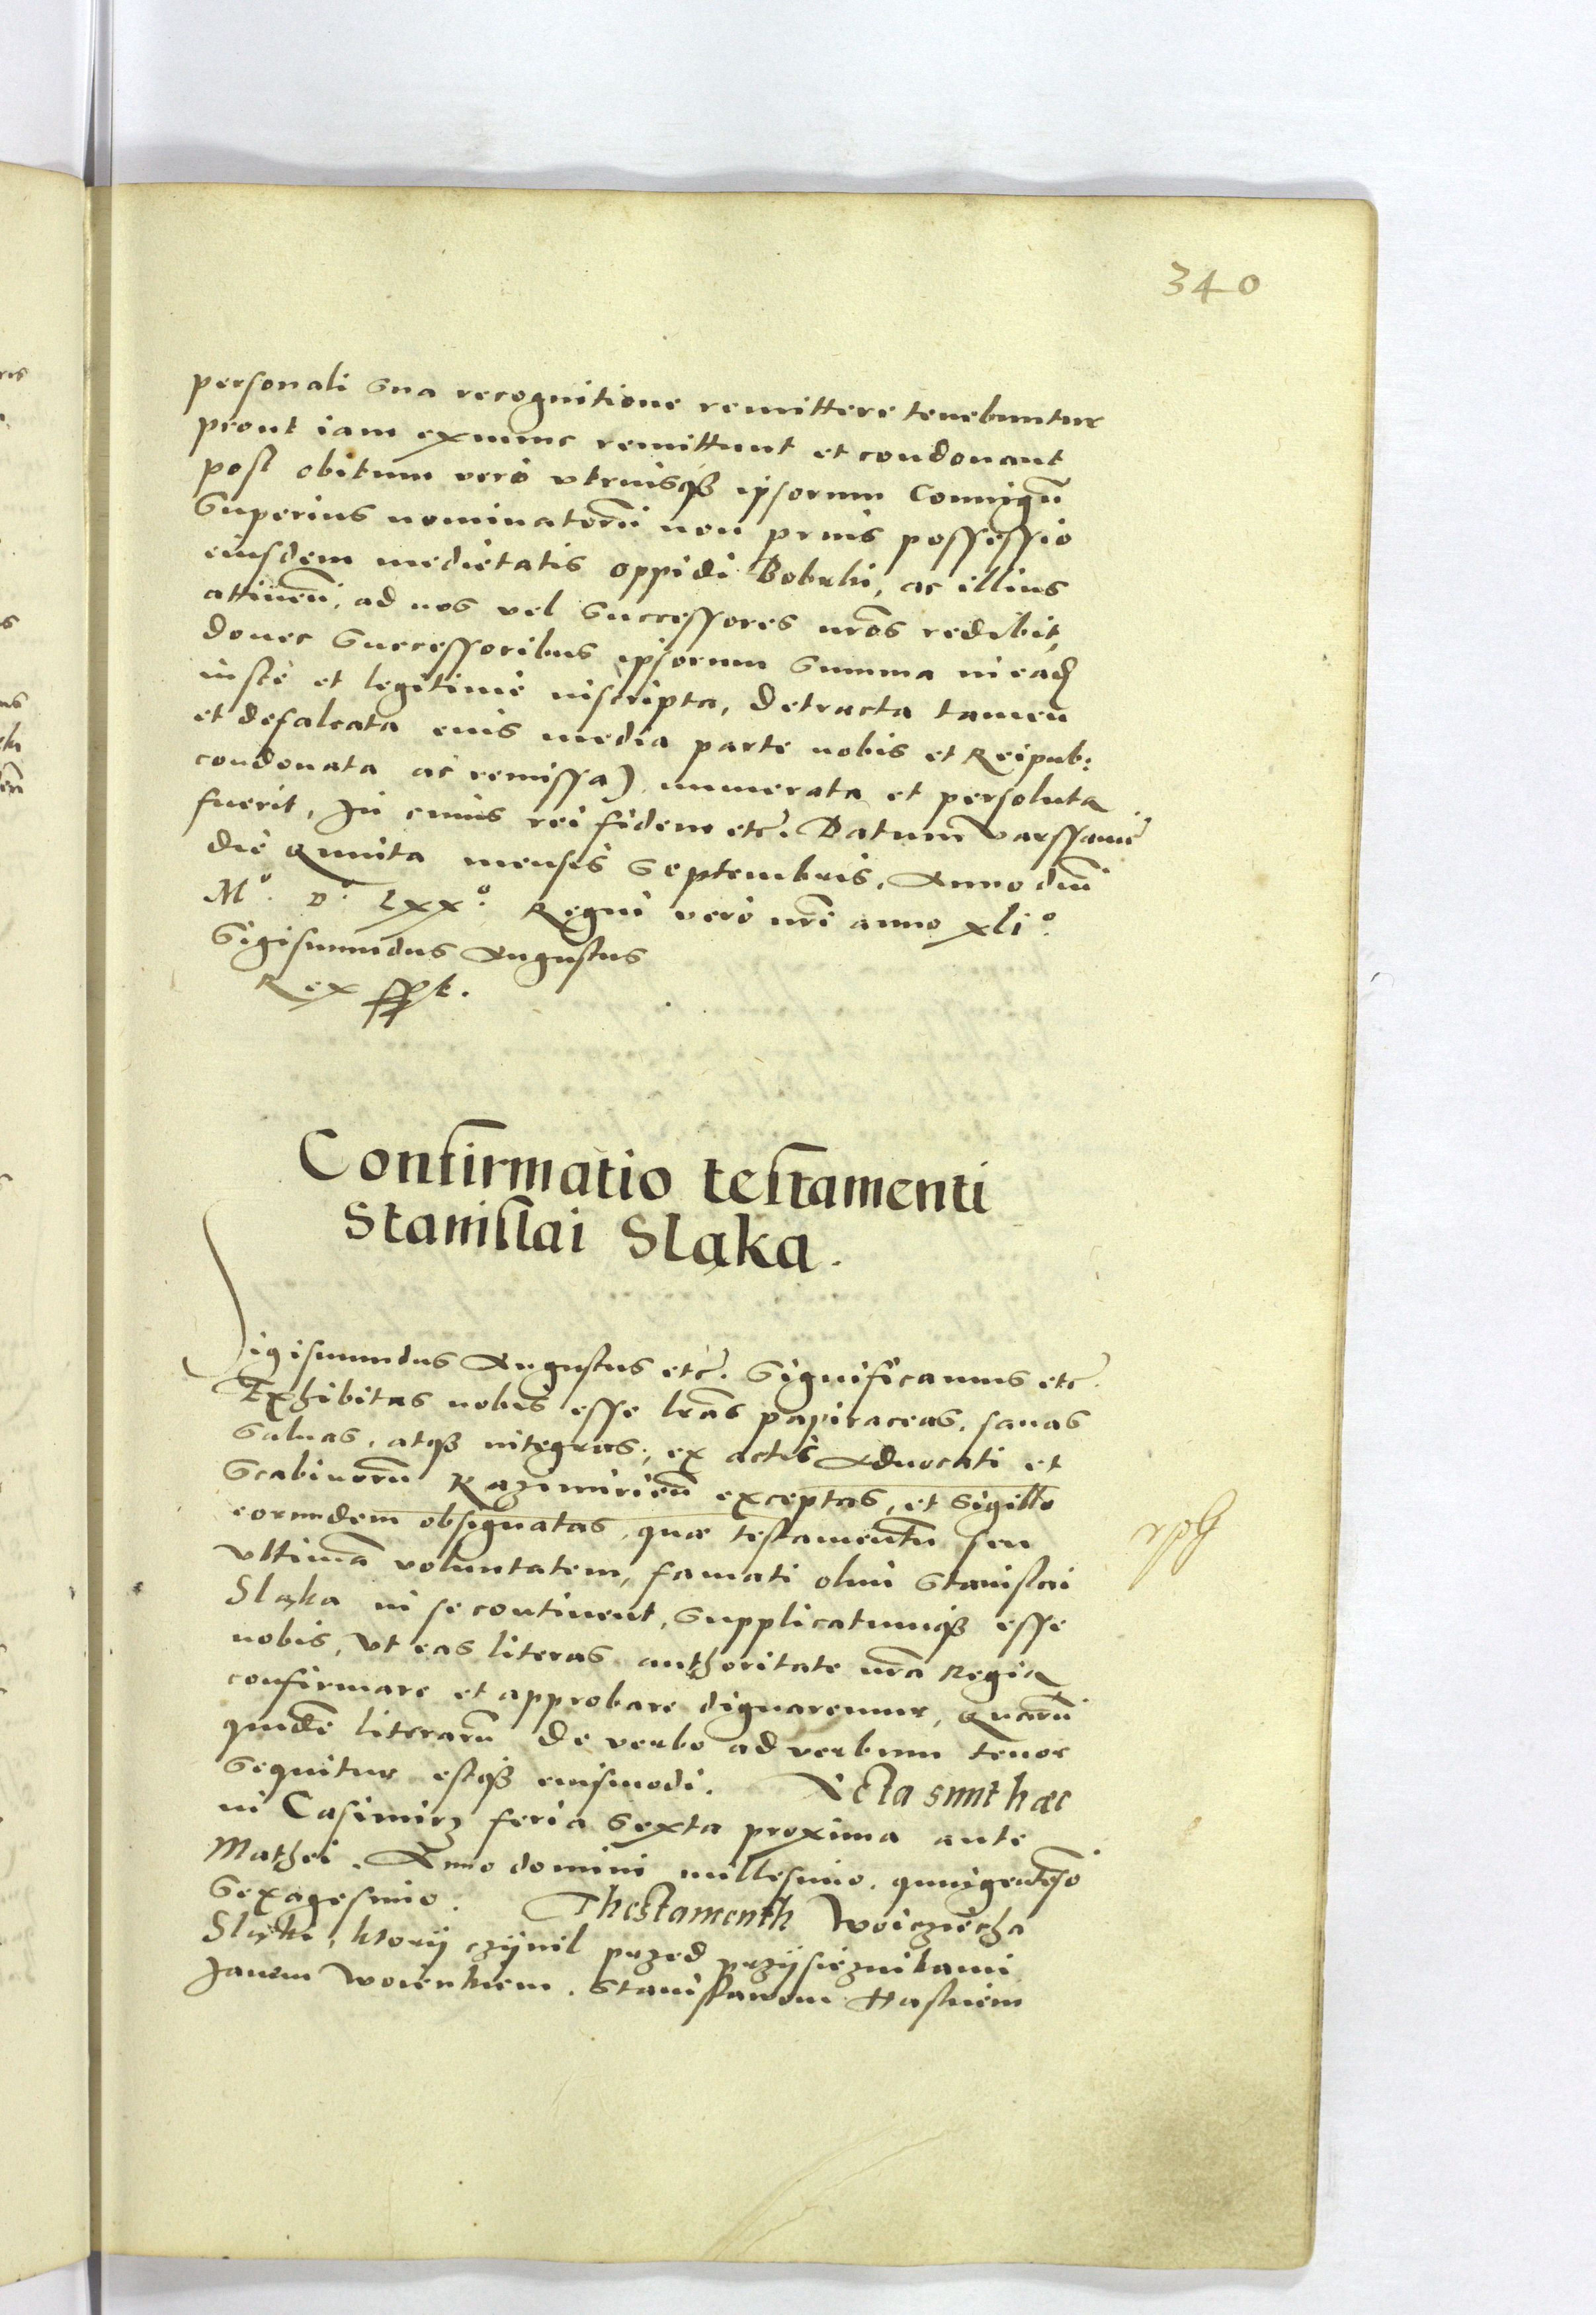 340
personali sua recognitione remittere tenebuntur
prout iam exnunc remittunt et condonant
post obitum vero vtriusq₃ ipsorum Coniugū
superius nominatorū non prius possessio
eiusdem medietatis oppidi Bobrki, ac illius
attinen̄, ad nos vel successores nr̄os redibit,
donec successoribus ipsorum summa in eadē
iuste et legitime inscripta, detracta tamen
et defalcata eius media parte nobis et Reipub:
condonata ac remissa) numerata et persoluta
fuerit, In cuius rei fidem etc̄. Datum Varssavie
die Quinta mensis Septembris, Anno dn̄i
Mº. Dº. Lxxº. Regni vero nr̄i anno xliº.
Sigismundus Augustus
Rex sspt.
Confirmatio testamenti
Stanislai Sląka.
Sigismundus Augustus etc̄. Significamus etc̄.
Exhibitas nobis esse lr̄as papiraceas, sanas
saluas, atq₃ integras, ex actis Aduocati et
Scabinorū Kazimirien̄ exceptas, et sigillo
eorundem obsignatas, quae testamentū seu
vltimā voluntatem, famati olim Stanislai
Sląka in se continent, supplicatumq₃ esse
nobis, vt eas literas authoritate nr̄a Regia
confirmare et approbare dignaremur, Quarū
quidē literarū de verbo ad verbum tenor
sequitur estq₃ eiusmodi. Acta sunt haec
in Casimirz feria sexta proxima ante
Mathei. Anno domini millesimo. quingentesō
sexagesimo. Thestamenth Woicziecha
Sląka, ktorÿ czÿnil przed przÿsiężnikami
Janem Stanislawem